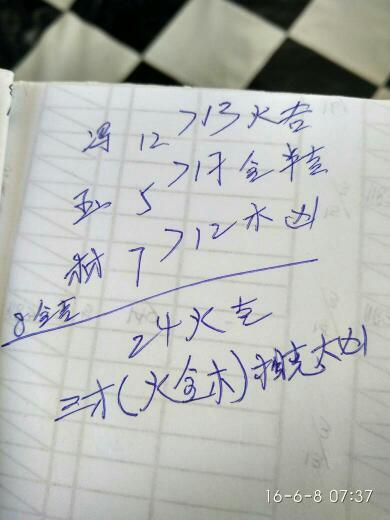 冯 12 >13火吉
玉 5 >17金半吉
树 7 >12木凶
8金吉
24火吉
三才(火金木)相克大凶
16-6-8 07:37